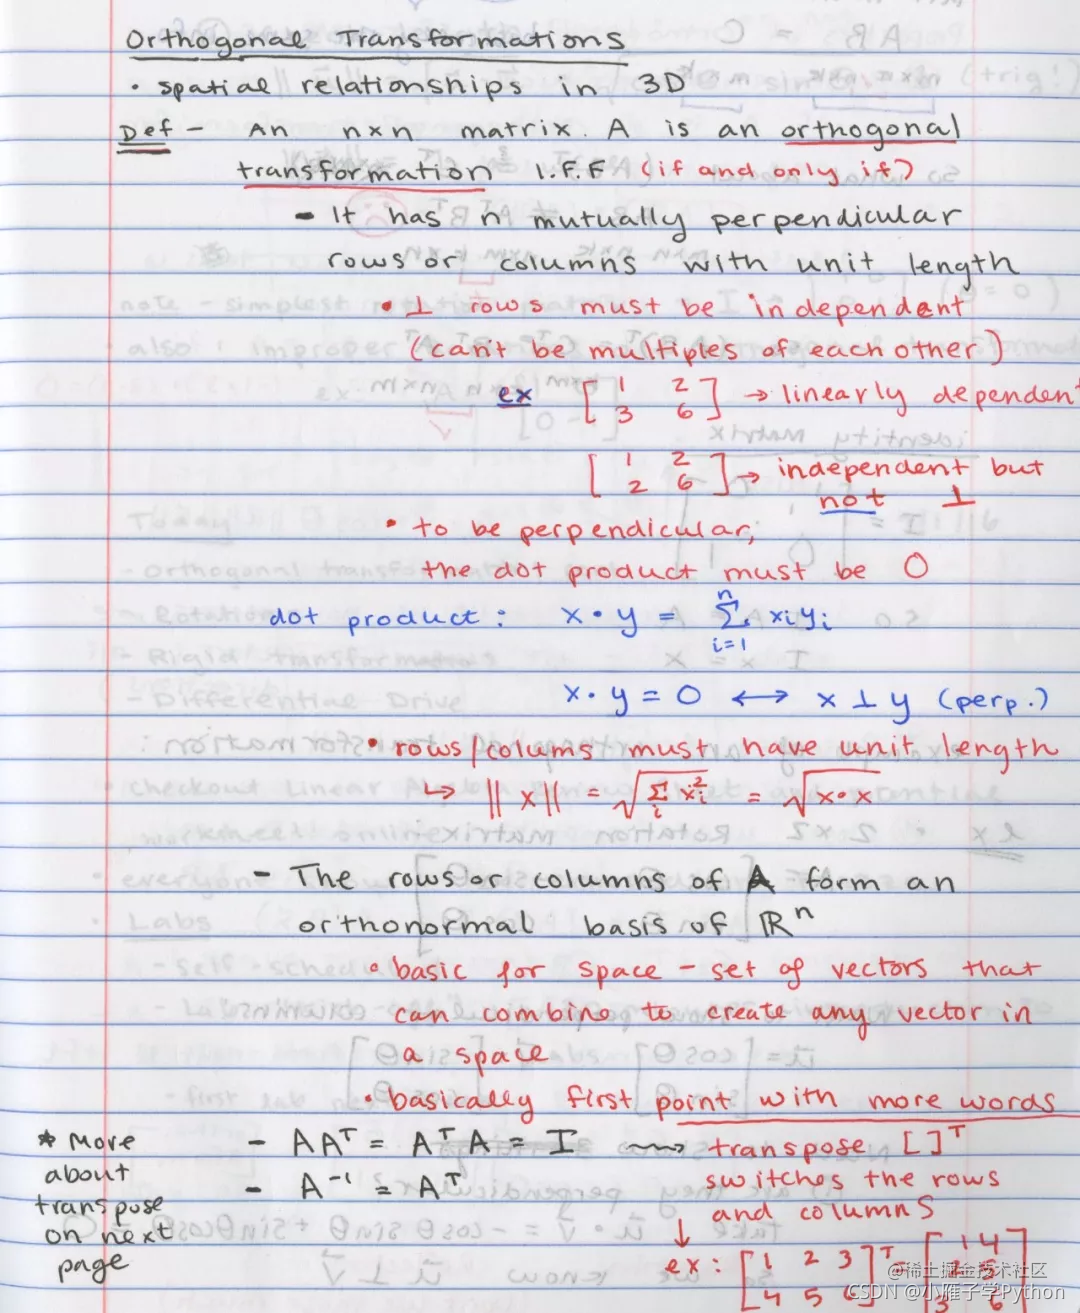 Orthogonal Transformations
• spatial relationships in 3D
Def - An n×n matrix A is an orthogonal
transformation I.F.F (if and only if)
- It has n mutually perpendicular
rows or columns with unit length
• ⊥ rows must be independent
(can't be multiples of each other)
ex [1 2 → linearly dependent
3 6]
[1 2 → independent but
2 6] not ⊥
• to be perpendicular,
the dot product must be 0
dot product: x • y = Σ_{i=1}^{n} xᵢyᵢ
x • y = 0 ↔ x ⊥ y (perp.)
• rows/colums must have unit length
↳ ||x|| = √(Σᵢ xᵢ²) = √(x•x)
- The rows or columns of A form an
orthonormal basis of ℝⁿ
• basic for space - set of vectors that
can combine to create any vector in
a space
• basically first point with more words
* More
about
transpose
on next
page
- AAᵀ = AᵀA = I → transpose [ ]ᵀ
- A⁻¹ = Aᵀ
switches the rows
and columns
↓
ex: [1 2 3]ᵀ = [1 4
4 5
@稀土掘金技术社区
CSDN @小雁子学Python